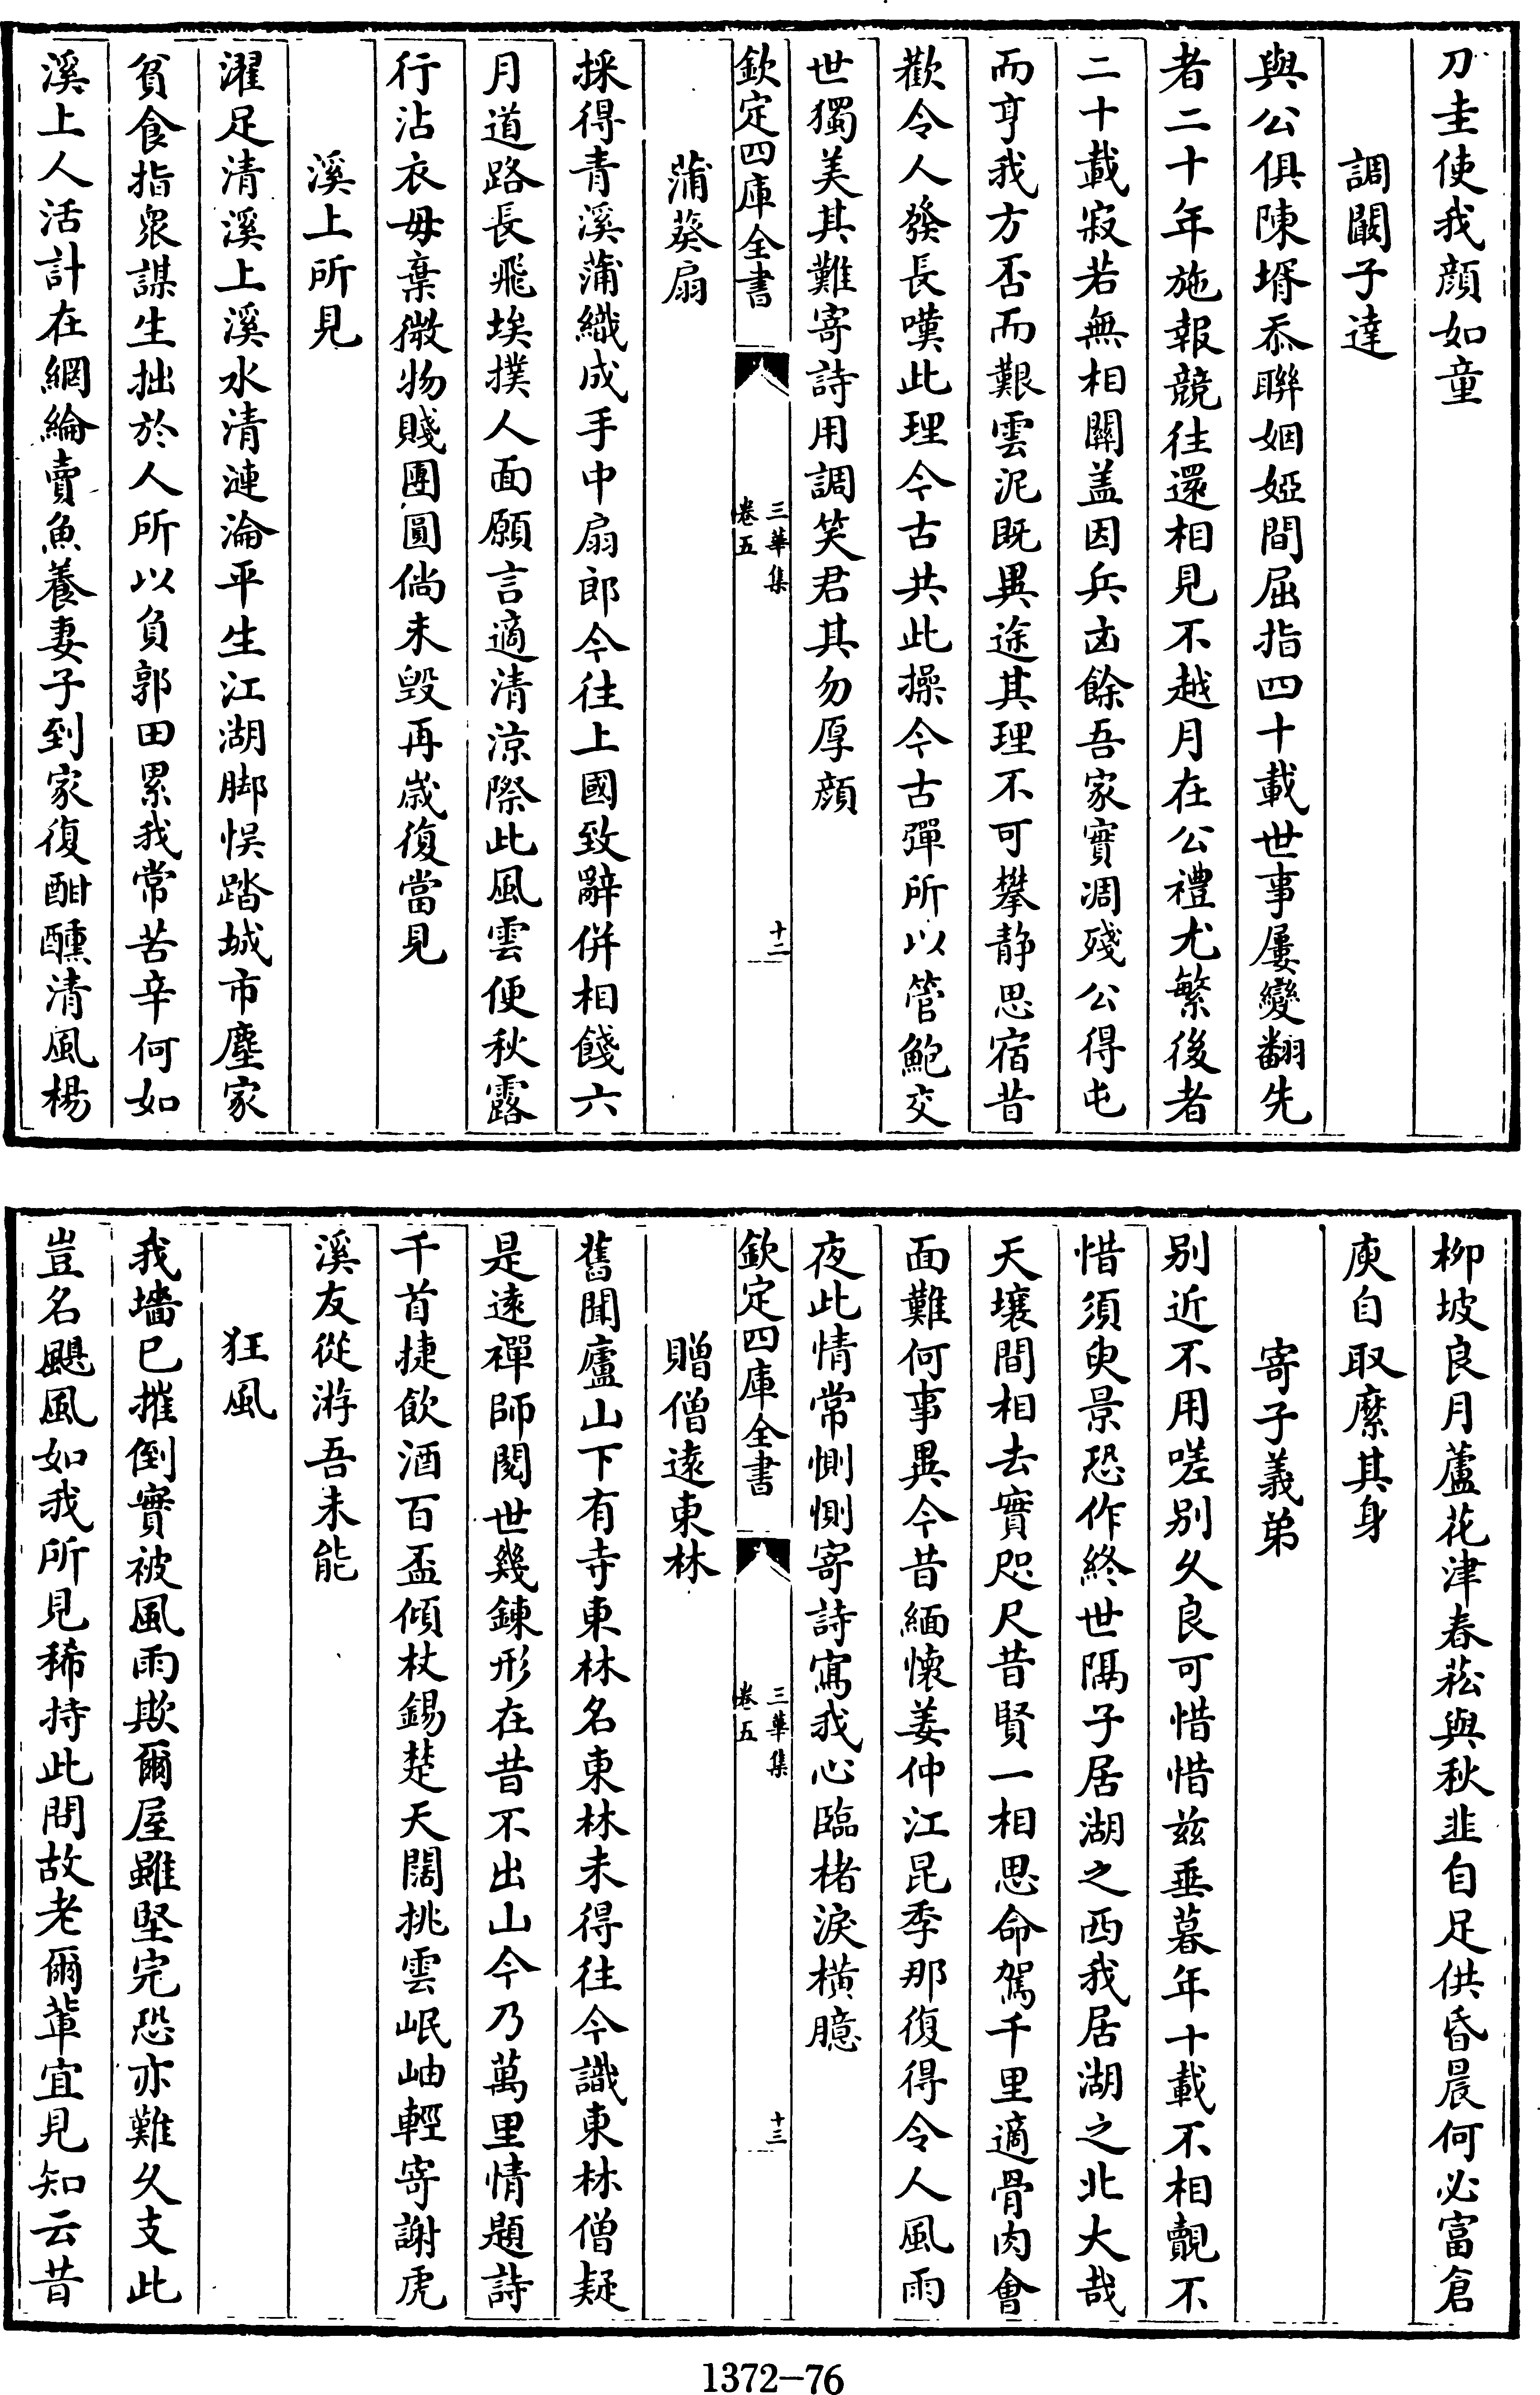 刀圭使我顔如童
調闞子達
與公俱陳壻忝聯姻婭間屈指四十載世事屢變翻先
者二十年施報競往還相見不越月在公禮尤繁後者
二十載寂若無相關盖因兵凶餘吾家實凋殘公得屯
而亨我方否而艱雲泥既異途其理不可攀静思宿昔
歡令人發長嘆此理今古共此操今古彈所以管鮑交
世獨美其難寄詩用調笑君其勿厚顔
欽定四庫全書
三華集
卷五
十二
蒲葵扇
採得青溪蒲織成手中扇郎今往上國致辭併相餞六
月道路長飛埃撲人面願言適清涼際此風雲便秋露
行沾衣毋棄微物賤團圓倘未毀再歲復當見
溪上所見
濯足清溪上溪水清漣淪平生江湖脚悞踏城市塵家
貧食指衆謀生拙於人所以負郭田累我常苦辛何如
溪上人活計在網綸賣魚養妻子到家復酣醺清風楊
柳坡良月蘆花津春菘與秋韭自足供昏晨何必富倉
庾自取縻其身
寄子義弟
别近不用嗟别久良可惜惜兹垂暮年十載不相覿不
惜須臾景恐作終世隔子居湖之西我居湖之北大哉
天壤間相去實咫尺昔賢一相思命駕千里適骨肉會
面難何事異今昔緬懷姜仲江昆季那復得令人風雨
夜此情常惻惻寄詩寫我心臨楮淚横臆
欽定四庫全書
三華集
卷五
十三
贈僧遠東林
舊聞廬山下有寺東林名東林未得往今識東林僧疑
是遠禪師閲世幾鍊形在昔不出山今乃萬里情題詩
千首捷飲酒百盃傾杖錫楚天闊挑雲岷岫輕寄謝虎
溪友從游吾未能
狂風
我墻已摧倒實被風雨欺爾屋雖堅完恐亦難久支此
豈名颶風如我所見稀持此問故老爾輩宜見知云昔
1372-76